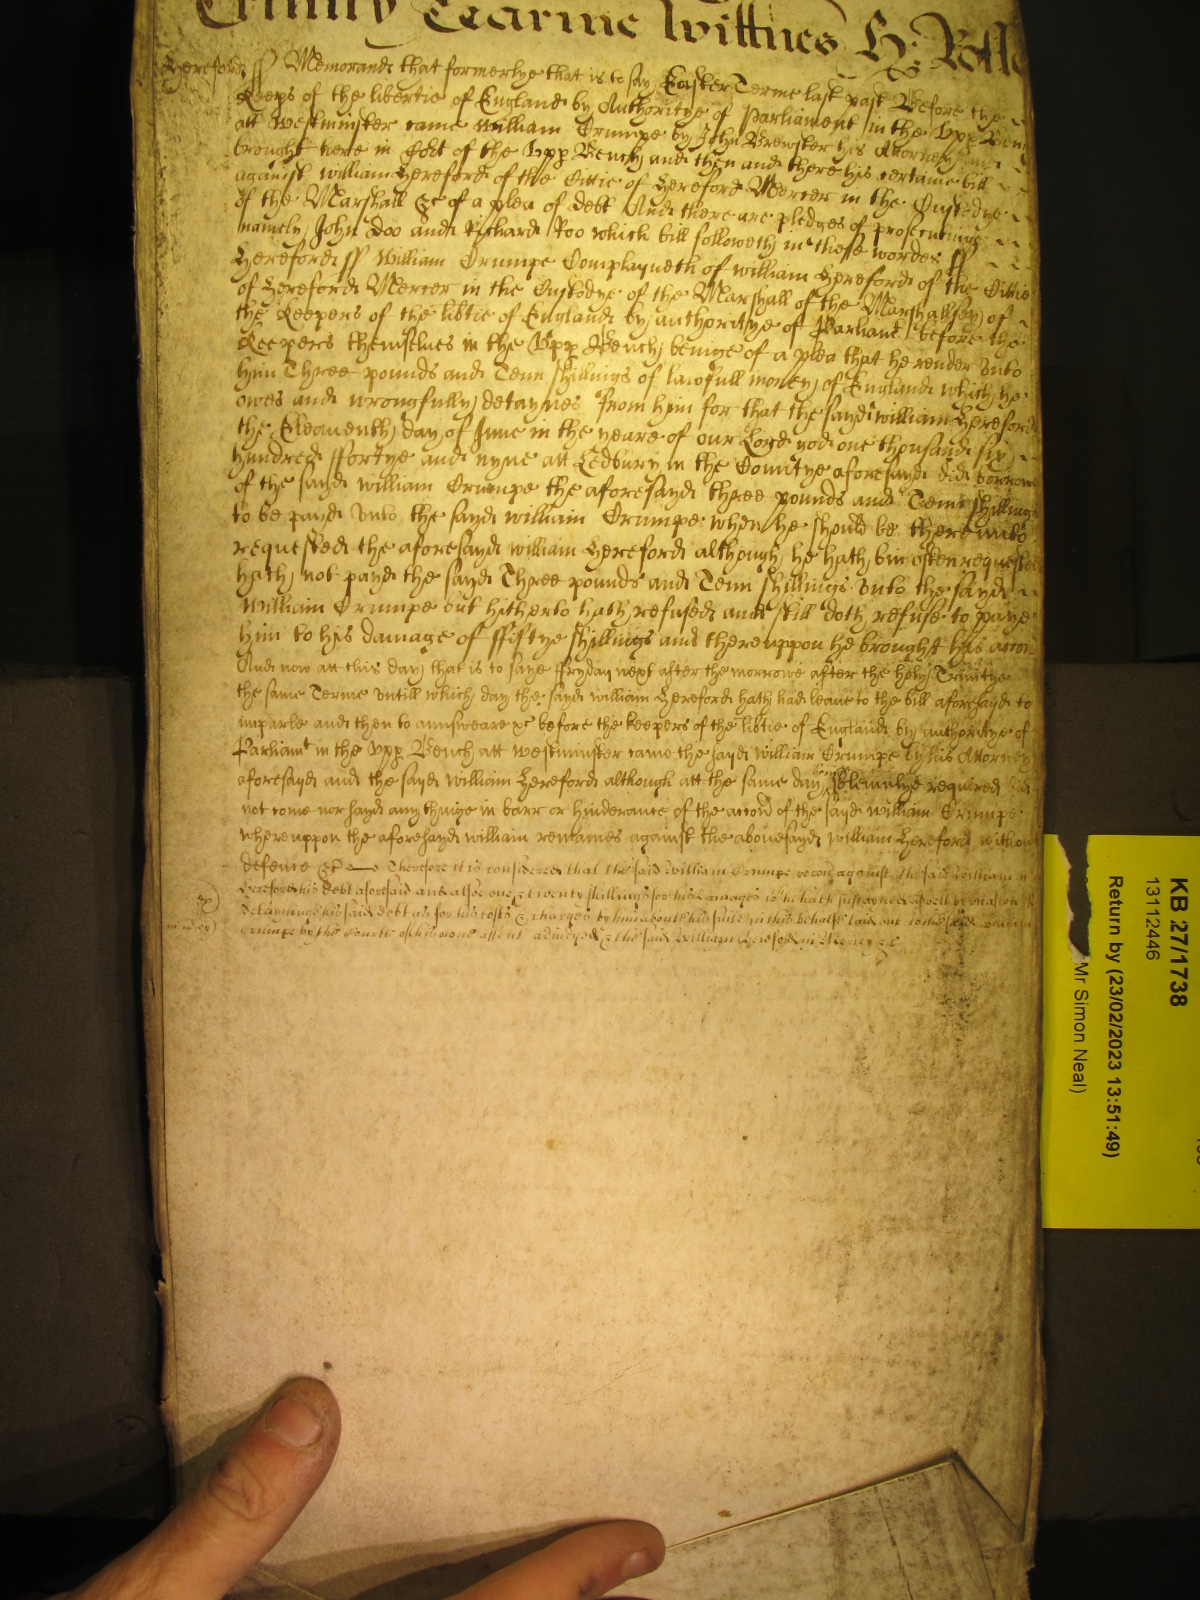 Trinity Tearme Wittnes H: Rolle
Hereford ss Memorand that formerlye that is to say Easter Terme last past Before the
Keeps of the libertie of England by Authoritye of Parliament in the Upp Bench
att Westminster came William Crumpe by John Brewster his Attorney and
brought here in Cort of the Upp Bench and then and there his certaine bill
against William Hereford of the Cittie of Hereford Mercer in the Custodye
of the Marshall &c of a plea of debt And there are pledges of prosecuting
namely John Doo and Richard Roo which bill followeth in these wordes ss
Hereford ss William Crumpe Complayneth of William Hereford of the Cittie
of Hereford Mercer in the Custodye of the Marshall of the Marshallsey of
the Keepers of the libtie of England by authoritye of Parliamt before the
Keepers themselues in the Upp Bench beinge of a plea that he render unto
him Three pounds and Tenn shillings of lawfull money of England which he
owes and wrongfully detaynes from him for that the sayd William Hereford
the Eleaventh day of June in the yeare of our Lord god one thousand six
hundred ffortye and nyne att Ledbury in the Countye aforesayd did borrow
of the sayd William Crumpe the aforesayd three pounds and Tenn shillings
to be payd unto the sayd William Crumpe when he should be thereunto
requested the aforesayd William Hereford although he hath bin often requested
hath not payd the sayd Three pounds and Tenn shillings unto the sayd
William Crumpe but hitherto hath refused and still doth refuse to paye
him to his damage of ffiftye shillings and thereuppon he brought his accon
And now att this day that is to saye ffryday next after the morrowe after the holy Trinitye
the same Terme untill which day the sayd William Hereford hath had leaue to the bill aforesayd to
imparle and then to annsweare &c before the keepers of the libtie of England by authoritye of
Parliamt in the Upp Bench att Westminster came the sayd William Crumpe by his Attorney
aforesayd and the sayd William Hereford although att the same day solemnlye required did
not come nor sayd any thinge in barr or hinderance of the accon of the sayd William Crumpe
whereuppon the aforesayd William remaines against the abouesayd William Hereford without
defence &c Therefore it is considered that the said William Crumpe recover against the said William
Hereford his debt aforesaid and alsoe one & twenty shillings for his damages wch he hath susteyned aswell by reason of
deteyninge his said debt as for his costs & charges by him aboute his suite in this behalfe laid out to the said William
Crumpe by the Courte of his owne assent adiudged & the said William Hereford in Mercy &c
in mercy
KB 27/1738
13112446
Return by (23/02/2023 13:51:49)
Mr Simon Neal)